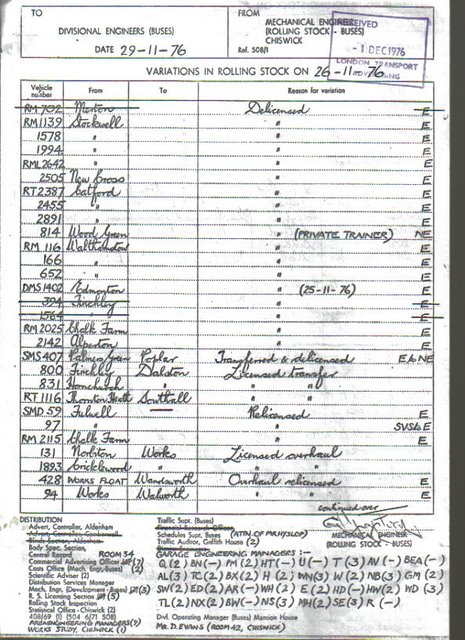 TO
FROM
DIVISIONAL ENGINEERS (BUSES)
MECHANICAL ENGINEER
(ROLLING STOCK - BUSES)
CHISWICK
DATE 29-11-76
Ref. 508/1
RECEIVED
- 1 DEC 1976
LONDON TRANSPORT
ADVERTISING
VARIATIONS IN ROLLING STOCK ON 26-11-76
Vehicle number From To Reason for variation
RM 702 Merton Delicensed E
RM1139 Stockwell " E
1578 " " E
1994 " " E
RML2642 " " E
2505 New Cross " E
RT2387 Catford " E
2455 " " E
2891 " " E
814 Wood Green " (PRIVATE TRAINER) NE
RM 116 Walthamstow " E
166 " " E
652 " " E
DMS1402 Edmonton " (25-11-76) E
394 Finchley " E
1564 " " E
RM 2025 Chalk Farm " E
2142 Alperton " E
SMS407 Palmers Green Poplar Transferred & delicensed E to NE
800 Finchley Dalston Licensed transfer
831 Hornchurch " " "
RT 1116 Thornton Heath Southall " "
SMD 59 Fulwell — Relicensed E
97 " " SVS to E
RM 2115 Chalk Farm " E
131 Norbiton Works Licensed overhaul
1893 Cricklewood " " "
428 WORKS FLOAT Wandsworth Overhaul relicensed E
94 Works Walworth " " E
continued over
MECHANICAL ENGINEER
(ROLLING STOCK - BUSES)
DISTRIBUTION
Advert. Controller, Aldenham
Advert. Controller, Camberwell
Blinds Section, Aldenham
Body Spec. Section
Central Record ROOM 54
Commercial Advertising Officer (7)
Costs Office (Mech. Engr.-Buses) (2)
Scientific Adviser (2)
Distribution Services Manager
Mech. Engr. (Development - Buses) (3)
R. S. Licensing Section
Rolling Stock Inspection
Statistical Office - Chiswick (2)
408/69 (1) 504 (6/7) 508)
AREA ENGINEERING MANAGERS(7)
WORKS STUDY, CHISWICK (1)
Traffic Supt. (Buses)
Financial Research Officer
Schedules Supt. (Buses) (ATTN OF MR HYSLOP)
Traffic Auditor, Griffith House (2)
GARAGE ENGINEERING MANAGERS :-
Q (2) BN (-) PM (2) HT (-) U (-) T (3) AV (-) BEA (-)
AL (3) TC (2) BX (2) H (2) WN (3) W (2) NB (3) GM (2)
SW (2) ED (2) AR (-) WH (2) E (2) HD (-) HW (2) WD (3)
TL (2) NX (2) BW (-) NS (3) MH (2) SE (3) R (-)
Divl. Operating Manager (Buses) Mansion House
MR. D. EVANS (ROOM 42, CHISWICK)